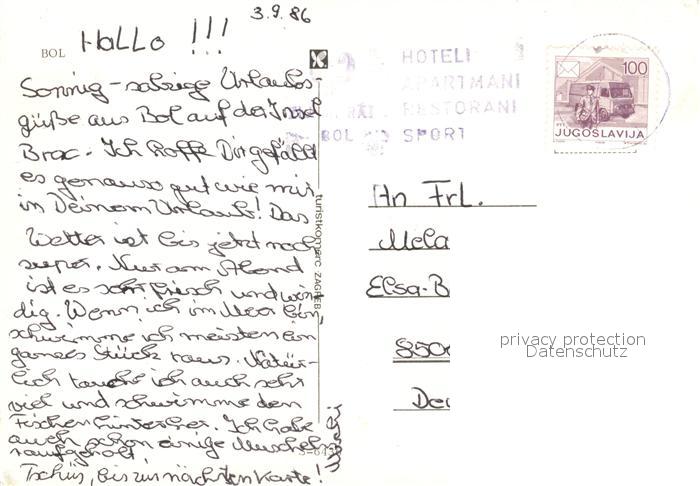 3.9.86
BOL
Hallo !!!
Sonnig-salzige Urlaubs
güße aus Bol auf der Insel
Brac. Ich hoffe Dir gefällt
es genauso gut wie mir
in Deinem Urlaub! Das
Wetter ist bis jetzt noch
super. Nur am Abend
ist es sehr frisch und win-
dig. Wenn ich im Meer bin
schwimme ich meistens ein
ganzes Stück raus. Natür-
lich tauche ich auch sehr
viel und schwimme den
Fischen hinterher. Ich habe
auch schon einige Muscheln
raufgeholt.
Tschüs, bis zur nächsten Karte!
turistkomerc ZAGREB
HOTELI
APARTMANI
RESTORANI
BOL SPORT
100
JUGOSLAVIJA
An Frl.
Mela
Elsa-B
850
De
privacy protection
Datenschutz